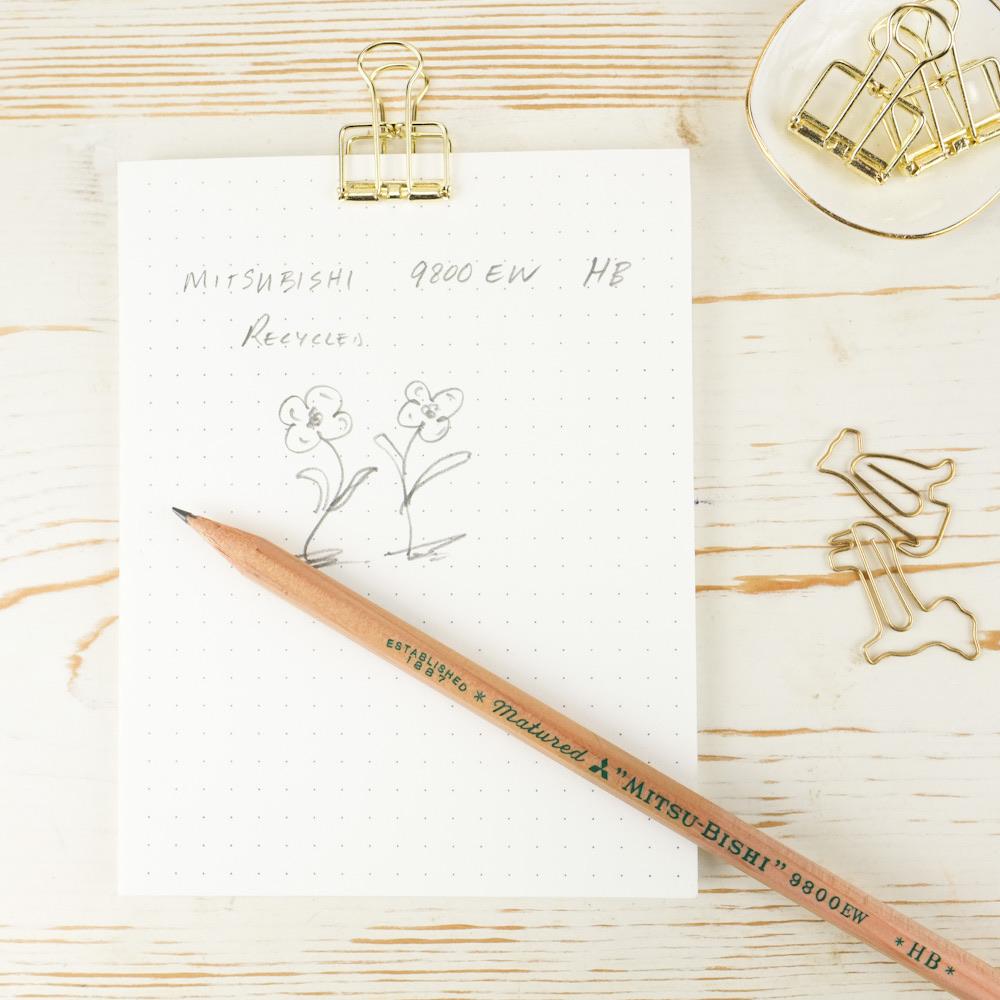 MITSUBISHI 9800 EW HB
RECYCLED
ESTABLISHED
1887
* Matured "MITSU-BISHI" 9800EW * HB *